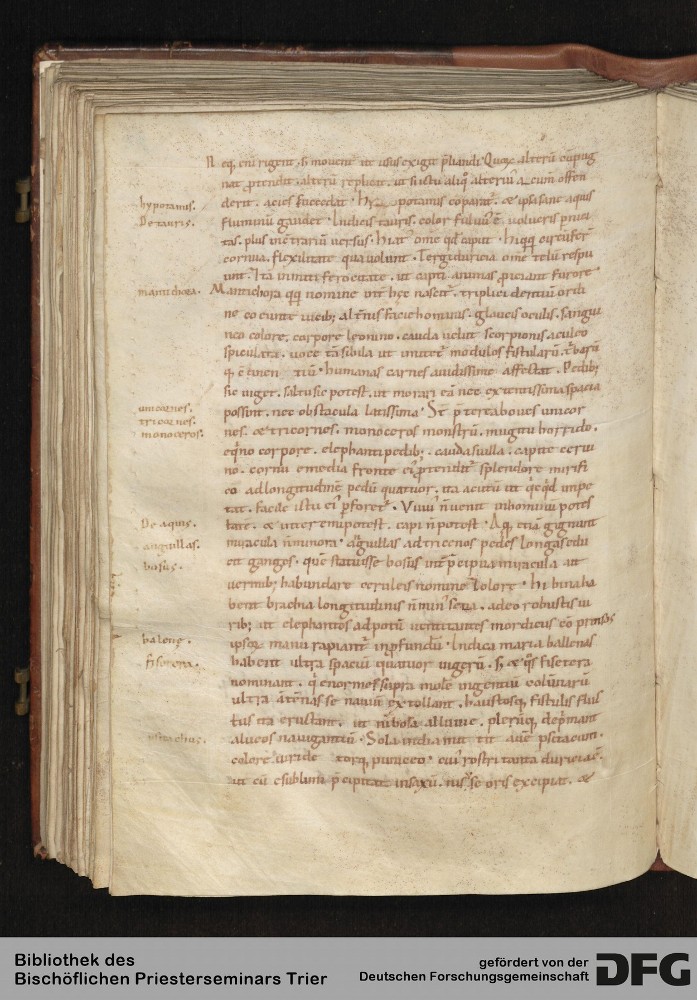 Neq; eni rigent. s; movent ut usus exigit pliandi. Quor alteru cu pug
nat ptendit. alteru replicat. ut si ictu aliq alteri acum offen
derit. acies succedat. hypotamis coparat. & ipsi sane aquis
hypotamis.
fluminu gaudet. Indicis tauris. color fuluus e. volucris pnici
De tauris.
tas. pilus in c trariu versus. hiat ome qd caput. hi qq; circufer
cornua. flexilitate qua volunt. Tergi duricia ome telu respu
unt. Ita inmiti ferocitate. ut capti animas piciant furore
mantichora.
Mantichora qq; nomine int hec nascit. triplici dentiu ordi
ne coeunte vicib; altnis. facie hominis. glaucis oculis. sangui
neo colore. corpore leonino. cauda velut scorpionis aculeo
spiculata. voce ta sibila ut imitet modulos fistularu. tbaru
q; c cinen tiu. humanas carnes auidissime affectat. Pedib;
sic viget. saltu sic potest. ut morari ea nec extentissima spacia
unicornes.
possint. nec obstacula latissima. St pterea boves unicor
tricornes.
nes. & tricornes. monoceros monstru. mugitu horrido.
monoceros.
eqno corpore. elephanti pedib;. cauda suilla. capite cervi
no. cornu e media fronte ei ptendit splendore mirifi
co ad longitudine pedu quatuor. ita acutu ut qcqd impe
tat. facile ictu ei pforet. Vivus n venit in hominu potes
De aquis.
tate. & interemi potest. capi n potest. Aq; etia gignunt
anguillas.
miracula n minora. Aguillas ad tricenos pedes longas edu
cit ganges. que statuisse bosus int pcipua miracula ait
bosus.
vermib; habundare ceruleis nomine & colore. hi bina ha
bent brachia longitudinis n min sena. adeo robustis vi
rib; ut elephantos ad potu ventitantes mordicus coprensos
balene.
ipsor manu rapiant in pfundu. Indica maria ballenas
fisetera.
habent ultra spaciu quatuor iugeru. s; & qs fisetera
nominant. q enormes supra mole ingentiu columnaru
ultra antenas se naviu extollant. haustosq; fistulis fluc
tus ita eructant. ut nibosa alluuie. pleruq; depmant
psitachus.
alveos navigantiu. Sola india mittit ave psitacum.
colore viridē torq; puniceo. cui rostri tanta duricia e.
ut cu e sublimi pcipitat in saxu. nisu se oris excipiat. &
Bibliothek des
Bischöflichen Priesterseminars Trier
gefördert von der
Deutschen Forschungsgemeinschaft
DFG